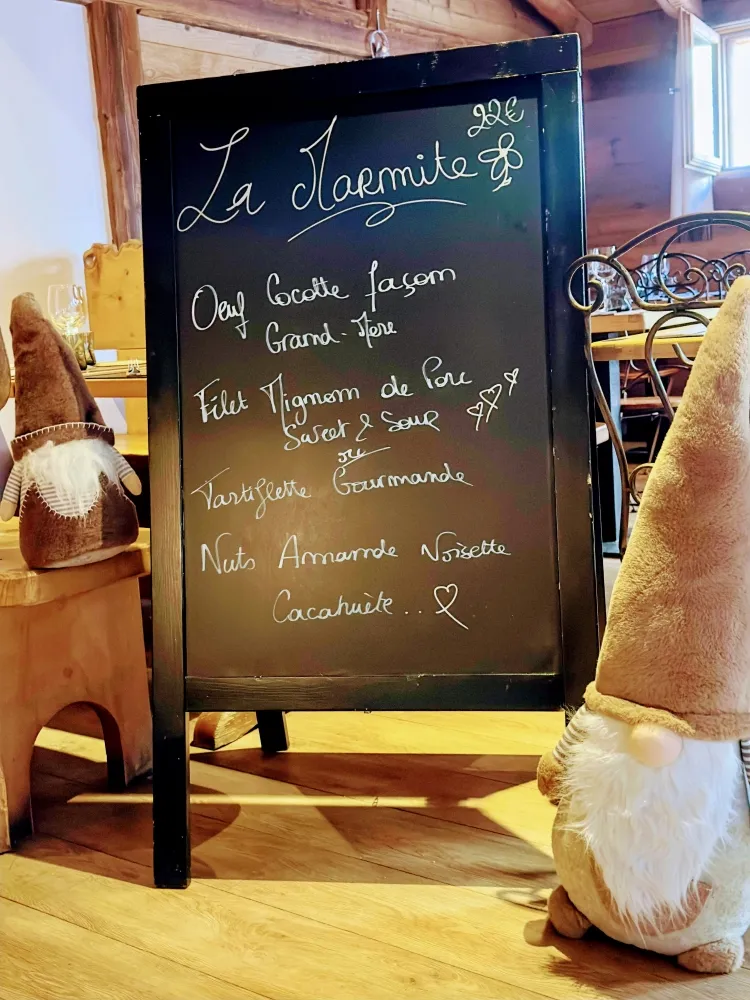 22€
La Marmite
Oeuf Cocotte façon
Grand-Mère
Filet Mignon de Porc
Sweet & Sour
ou
Tartiflette Gourmande
Nuts Amande Noisette
Cacahuète..